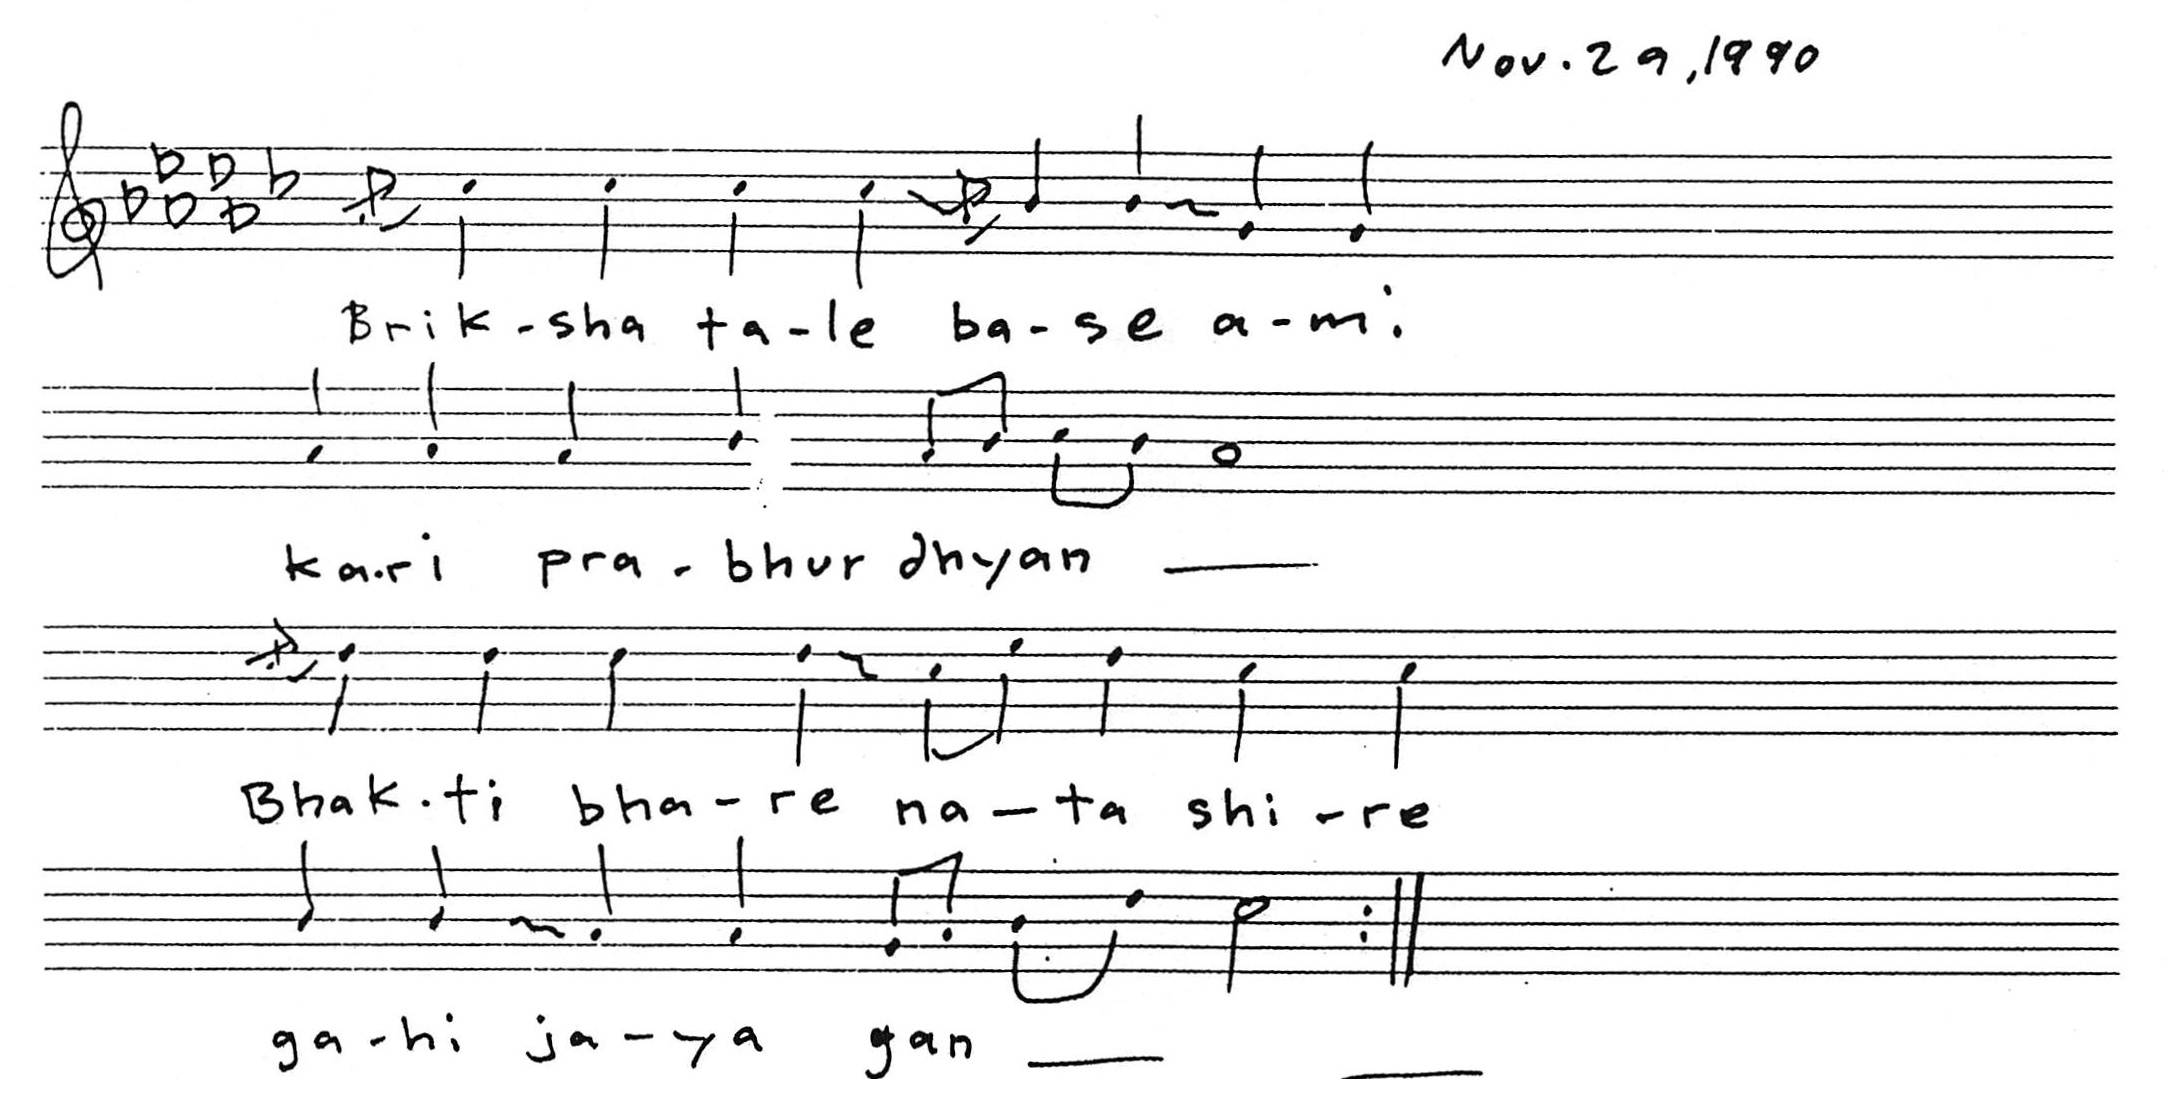 Nov. 29, 1990
Brik-sha ta-le ba-se a-mi
ka-ri pra-bhur dhyan ——
Bhak-ti bha-re na-ta shi-re
ga-hi ja-ya gan ——